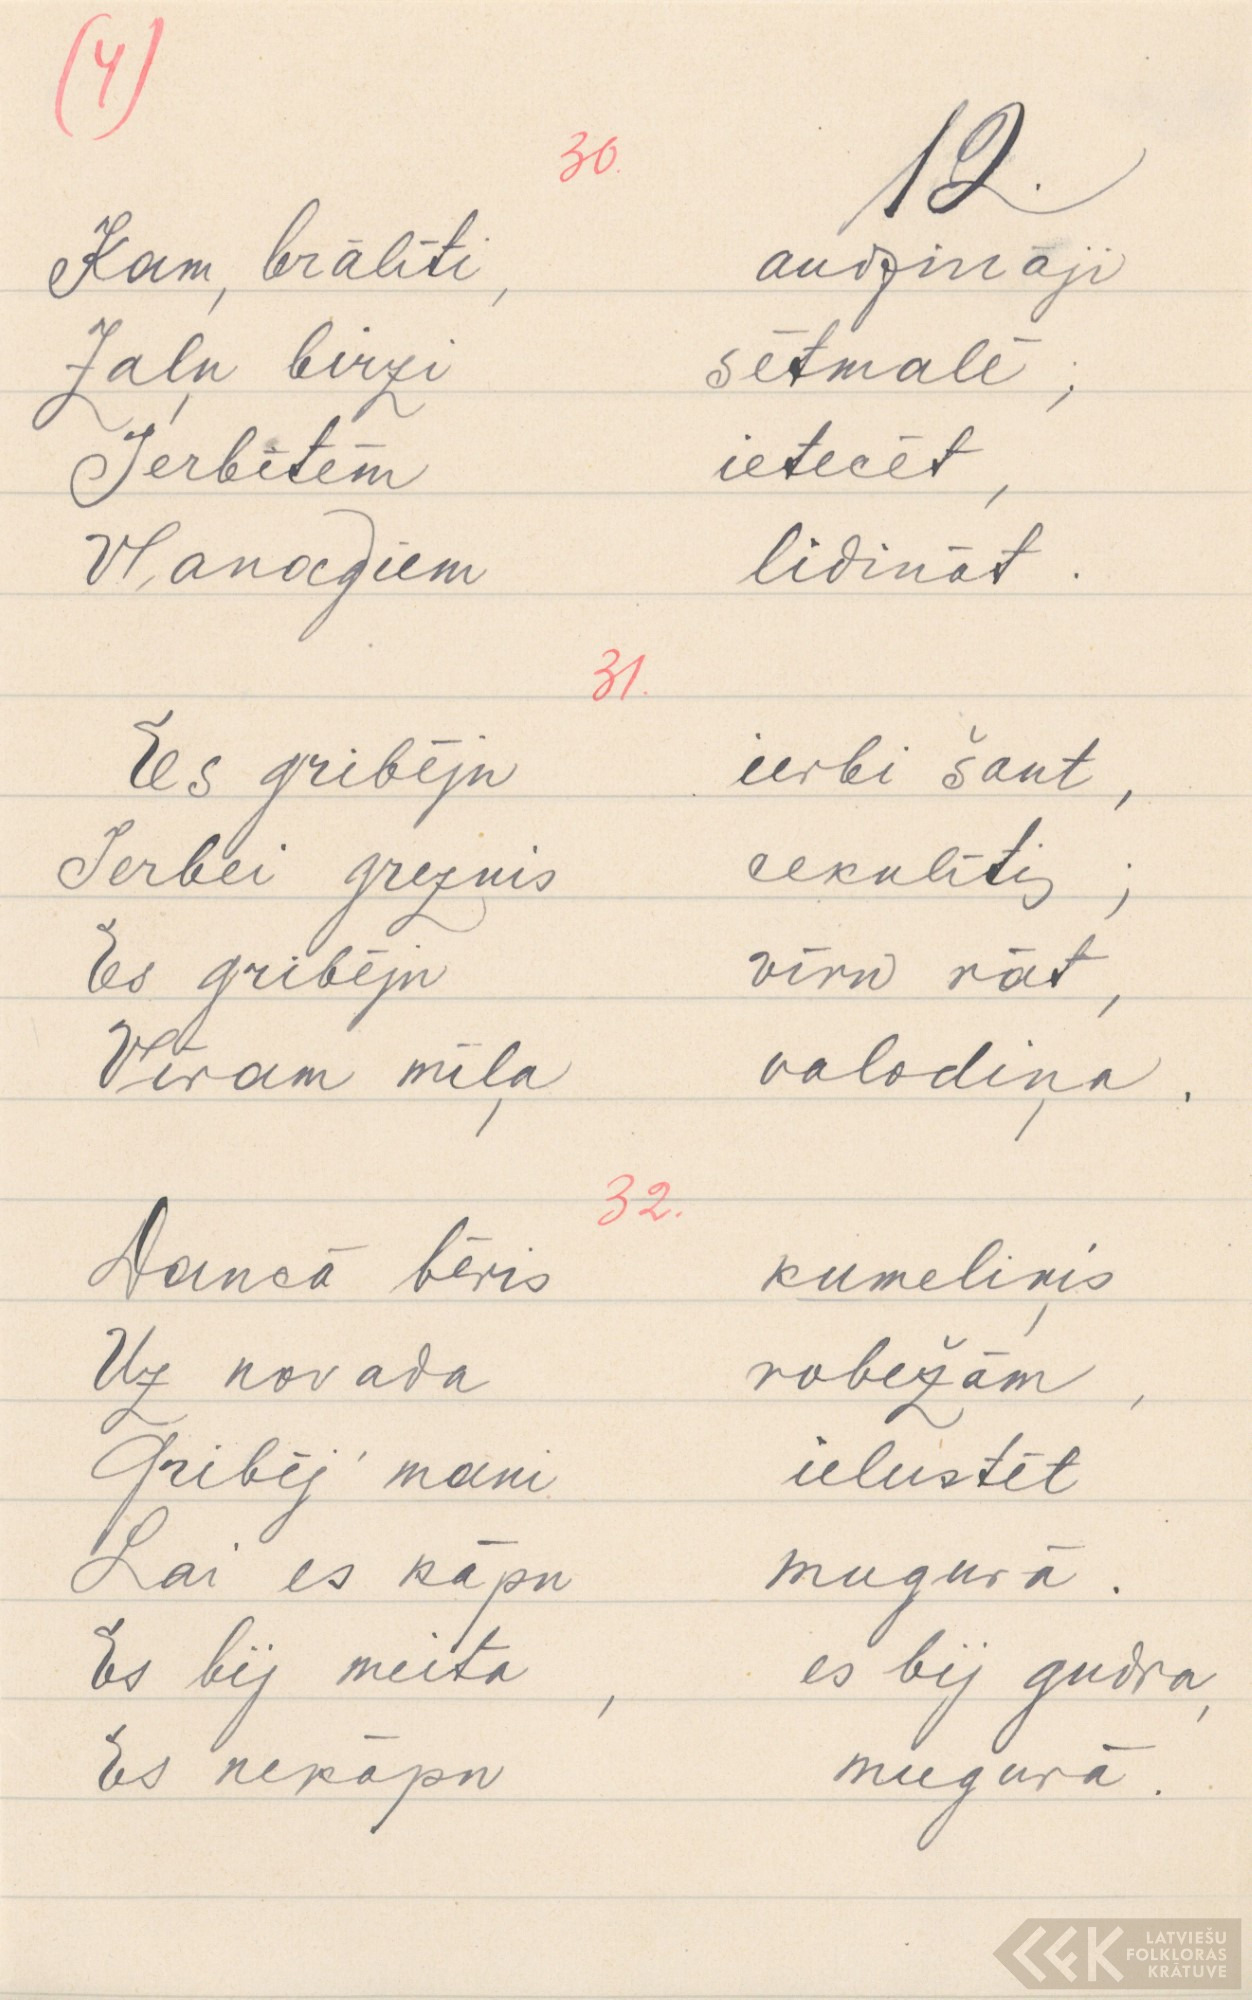 (4)
12.
30.
Kam, brālīti, audzināji
Zaļu birzi sētmalē;
Ierbītēm ietecēt,
Vanagiem lidināt.
31.
Es gribēju ierbi šaut,
Ierbei greznis cekulītis;
Es gribēju vīru rāt,
Vīram mīļa valodiņa.
32.
Dancā bēris kumeliņis
Uz novada robežām,
Gribēj' mani ielustēt
Lai es kāpu mugurā.
Es bij meita, es bij gudra,
Es nekāpu mugurā.
LATVIEŠU
FOLKLORAS
KRĀTUVE